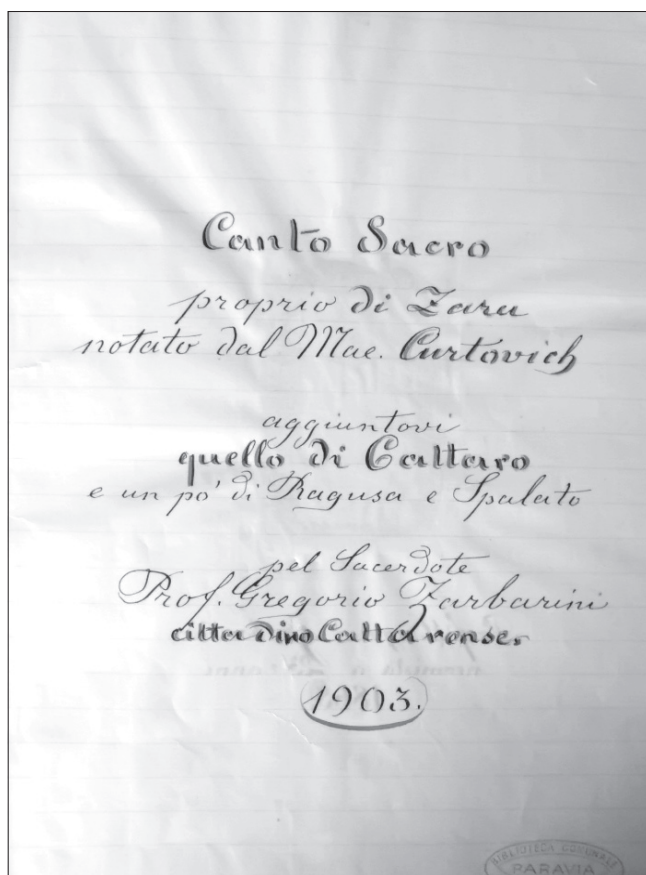 Canto Sacro
proprio di Zara
notato dal Mae. Curtovich
aggiuntovi
quello di Cattaro
e un po' di Ragusa e Spalato
pel Sacerdote
Prof. Gregorio Zarbarini
cittadino Cattarense.
1903.
BIBLIOTECA COMUNALE
PARAVIA